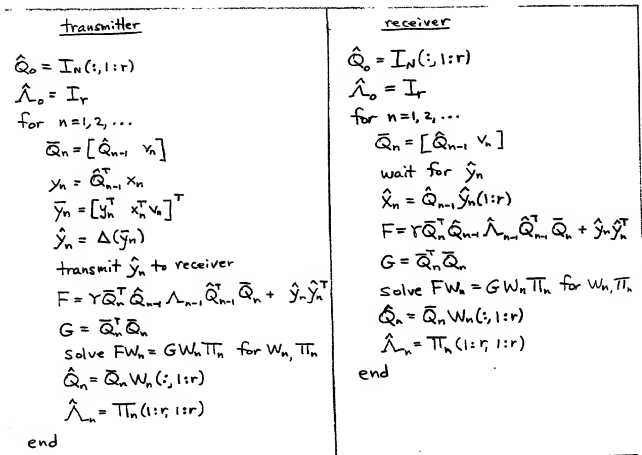 transmitter
Q̂₀ = I_N(:,1:r)
Λ̂₀ = I_r
for n=1,2,...
Q̄ₙ = [Q̂ₙ₋₁ vₙ]
yₙ = Q̂ₙ₋₁ᵀ xₙ
ȳₙ = [yₙᵀ xₙᵀvₙ]ᵀ
ŷₙ = Δ(ȳₙ)
transmit ŷₙ to receiver
F = γQ̄ₙᵀ Q̂ₙ₋₁ Λₙ₋₁ Q̂ₙ₋₁ᵀ Q̄ₙ + ŷₙŷₙᵀ
G = Q̄ₙᵀ Q̄ₙ
solve FWₙ = GWₙΠₙ for Wₙ, Πₙ
Q̂ₙ = Q̄ₙ Wₙ(:,1:r)
Λ̂ₙ = Πₙ(1:r, 1:r)
end
receiver
Q̂₀ = I_N(:,1:r)
Λ̂₀ = I_r
for n=1,2,...
Q̄ₙ = [Q̂ₙ₋₁ vₙ]
wait for ŷₙ
x̂ₙ = Q̂ₙ₋₁ ŷₙ(1:r)
F = γQ̄ₙᵀ Q̂ₙ₋₁ Λ̂ₙ₋₁ Q̂ₙ₋₁ᵀ Q̄ₙ + ŷₙŷₙᵀ
G = Q̄ₙᵀ Q̄ₙ
solve FWₙ = GWₙΠₙ for Wₙ, Πₙ
Q̂ₙ = Q̄ₙ Wₙ(:,1:r)
Λ̂ₙ = Πₙ(1:r, 1:r)
end